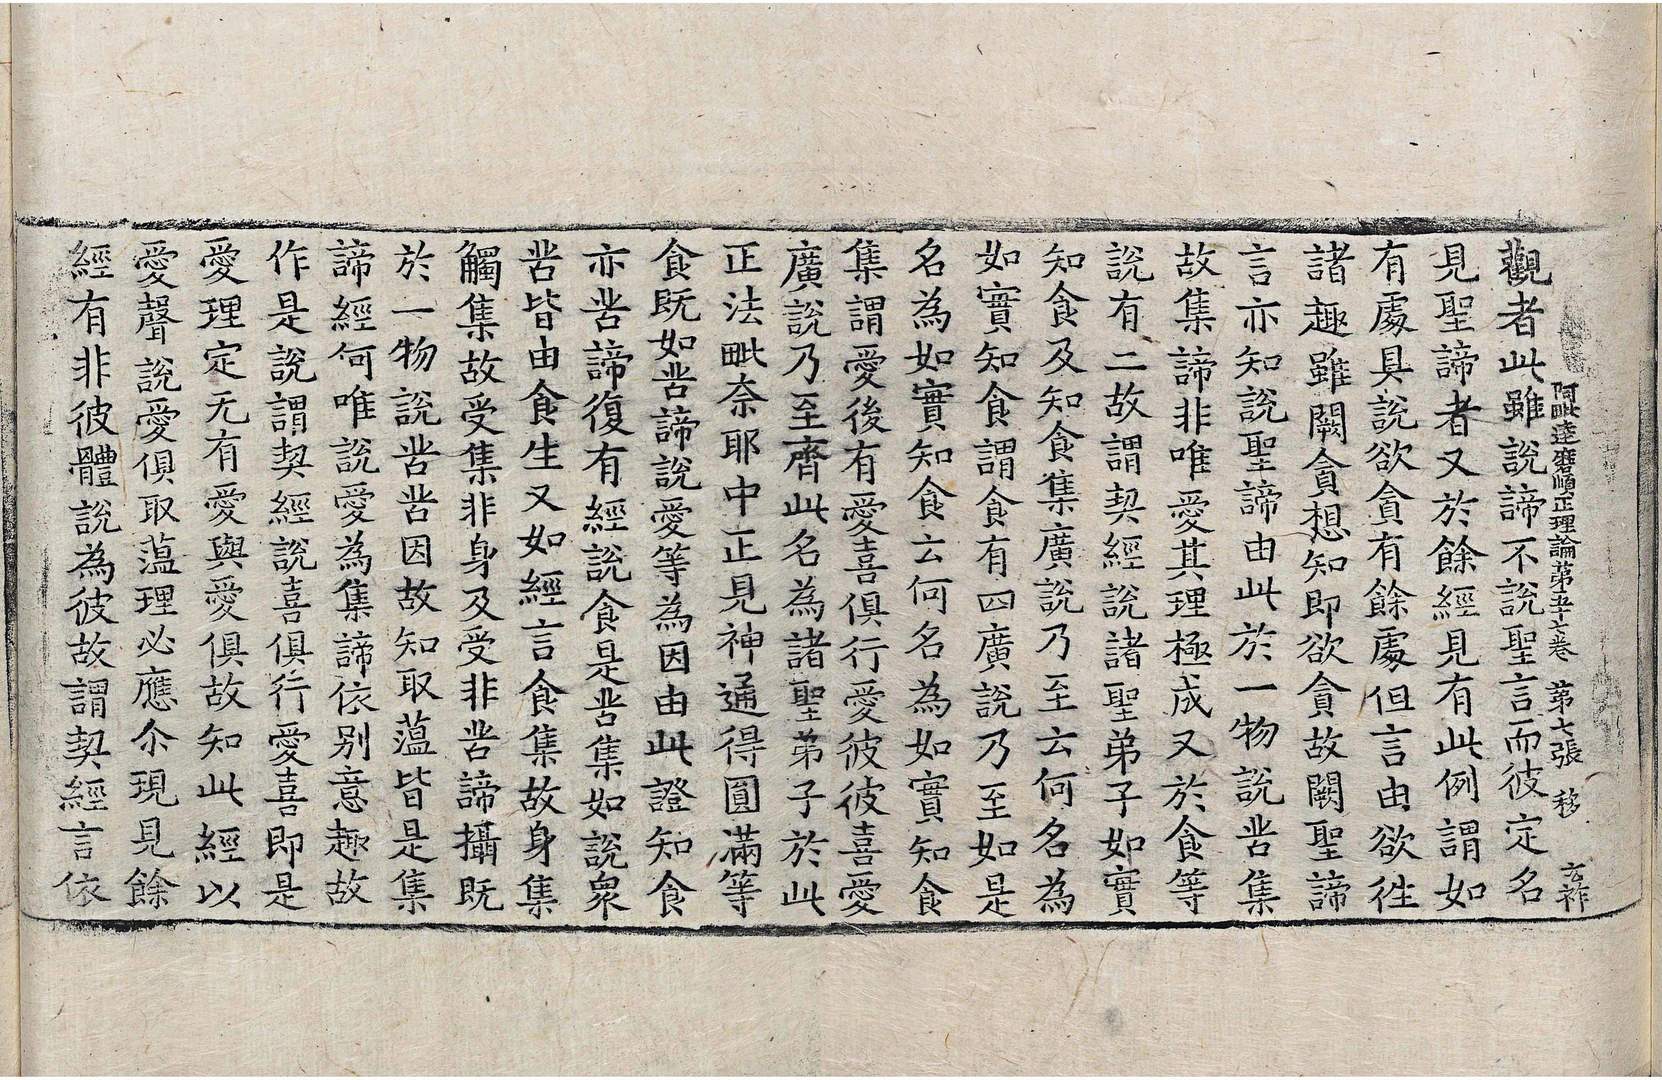 阿毗達磨順正理論苐五十七卷 苐七張 移 玄祚
觀者此雖說諦不說聖言而彼定名
見聖諦者又於餘經見有此例謂如
有處具說欲貪有餘處但言由欲徃
諸趣雖闕貪想知即欲貪故闕聖諦
言亦知說聖諦由此於一物說苦集
故集諦非唯愛其理極成又於食等
說有二故謂契經說諸聖弟子如實
知食及知食集廣說乃至云何名為
如實知食謂食有四廣說乃至如是
名為如實知食云何名為如實知食
集謂愛後有愛喜俱行愛彼彼喜愛
廣說乃至齊此名為諸聖弟子於此
正法毗奈耶中正見神通得圓滿等
食既如苦諦說愛等為因由此證知食
亦苦諦復有經說食是苦集如說衆
苦皆由食生又如經言食集故身集
觸集故受集非身及受非苦諦攝既
於一物說苦苦因故知取蘊皆是集
諦經何唯說愛為集諦依別意趣故
作是說謂契經說喜俱行愛喜即是
愛理定无有愛與愛俱故知此經以
愛聲說愛俱取蘊理必應尒現見餘
經有非彼體說為彼故謂契經言依